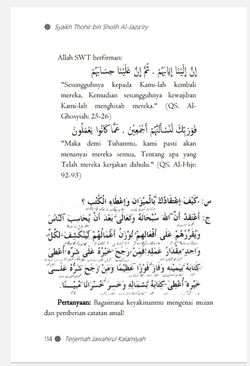 Syaikh Thohir bin Sholih Al-Jaza'iry
Allah SWT berfirman:
إِنَّ إِلَيْنَا إِيَابَهُمْ . ثُمَّ إِنَّ عَلَيْنَا حِسَابَهُمْ
"Sesungguhnya kepada Kami-lah kembali
mereka, Kemudian sesungguhnya kewajiban
Kami-lah menghisab mereka." (QS. Al-
Ghosyiah: 25-26)
فَوَرَبِّكَ لَنَسْأَلَنَّهُمْ أَجْمَعِينَ . عَمَّا كَانُوا يَعْمَلُونَ
"Maka demi Tuhanmu, kami pasti akan
menanyai mereka semua, Tentang apa yang
Telah mereka kerjakan dahulu." (QS. Al-Hijr:
92-93)
س: كَيْفَ اعْتِقَادُكَ بِالْمِيْزَانِ وَإِعْطَاءِ الْكُتُبِ ؟
ج: أَعْتَقِدُ أَنَّ اللهَ سُبْحَانَهُ وَتَعَالَى بَعْدَ أَنْ يُحَاسِبَ النَّاسَ
وَيُقَرِّرَهُمْ عَلَى أَفْعَالِهِمْ تُوْزَنُ أَعْمَالُهُمْ لِيَنْكَشِفَ لِكُلِّ
وَاحِدٍ مِقْدَارُ عَمَلِهِ فَمَنْ رَجَحَ خَيْرُهُ عَلَى شَرِّهِ أُعْطِيَ
كِتَابَهُ بِيَمِيْنِهِ وَفَازَ فَوْزًا عَظِيْمًا وَمَنْ رَجَحَ شَرُّهُ عَلَى
خَيْرِهِ أُعْطِيَ كِتَابَهُ بِشِمَالِهِ وَخَسِرَ خُسْرَانًا مُبِيْنًا.
Pertanyaan: Bagaimana keyakinanmu mengenai mizan
dan pemberian catatan amal?
114 Terjemah Jawahirul Kalamiyah